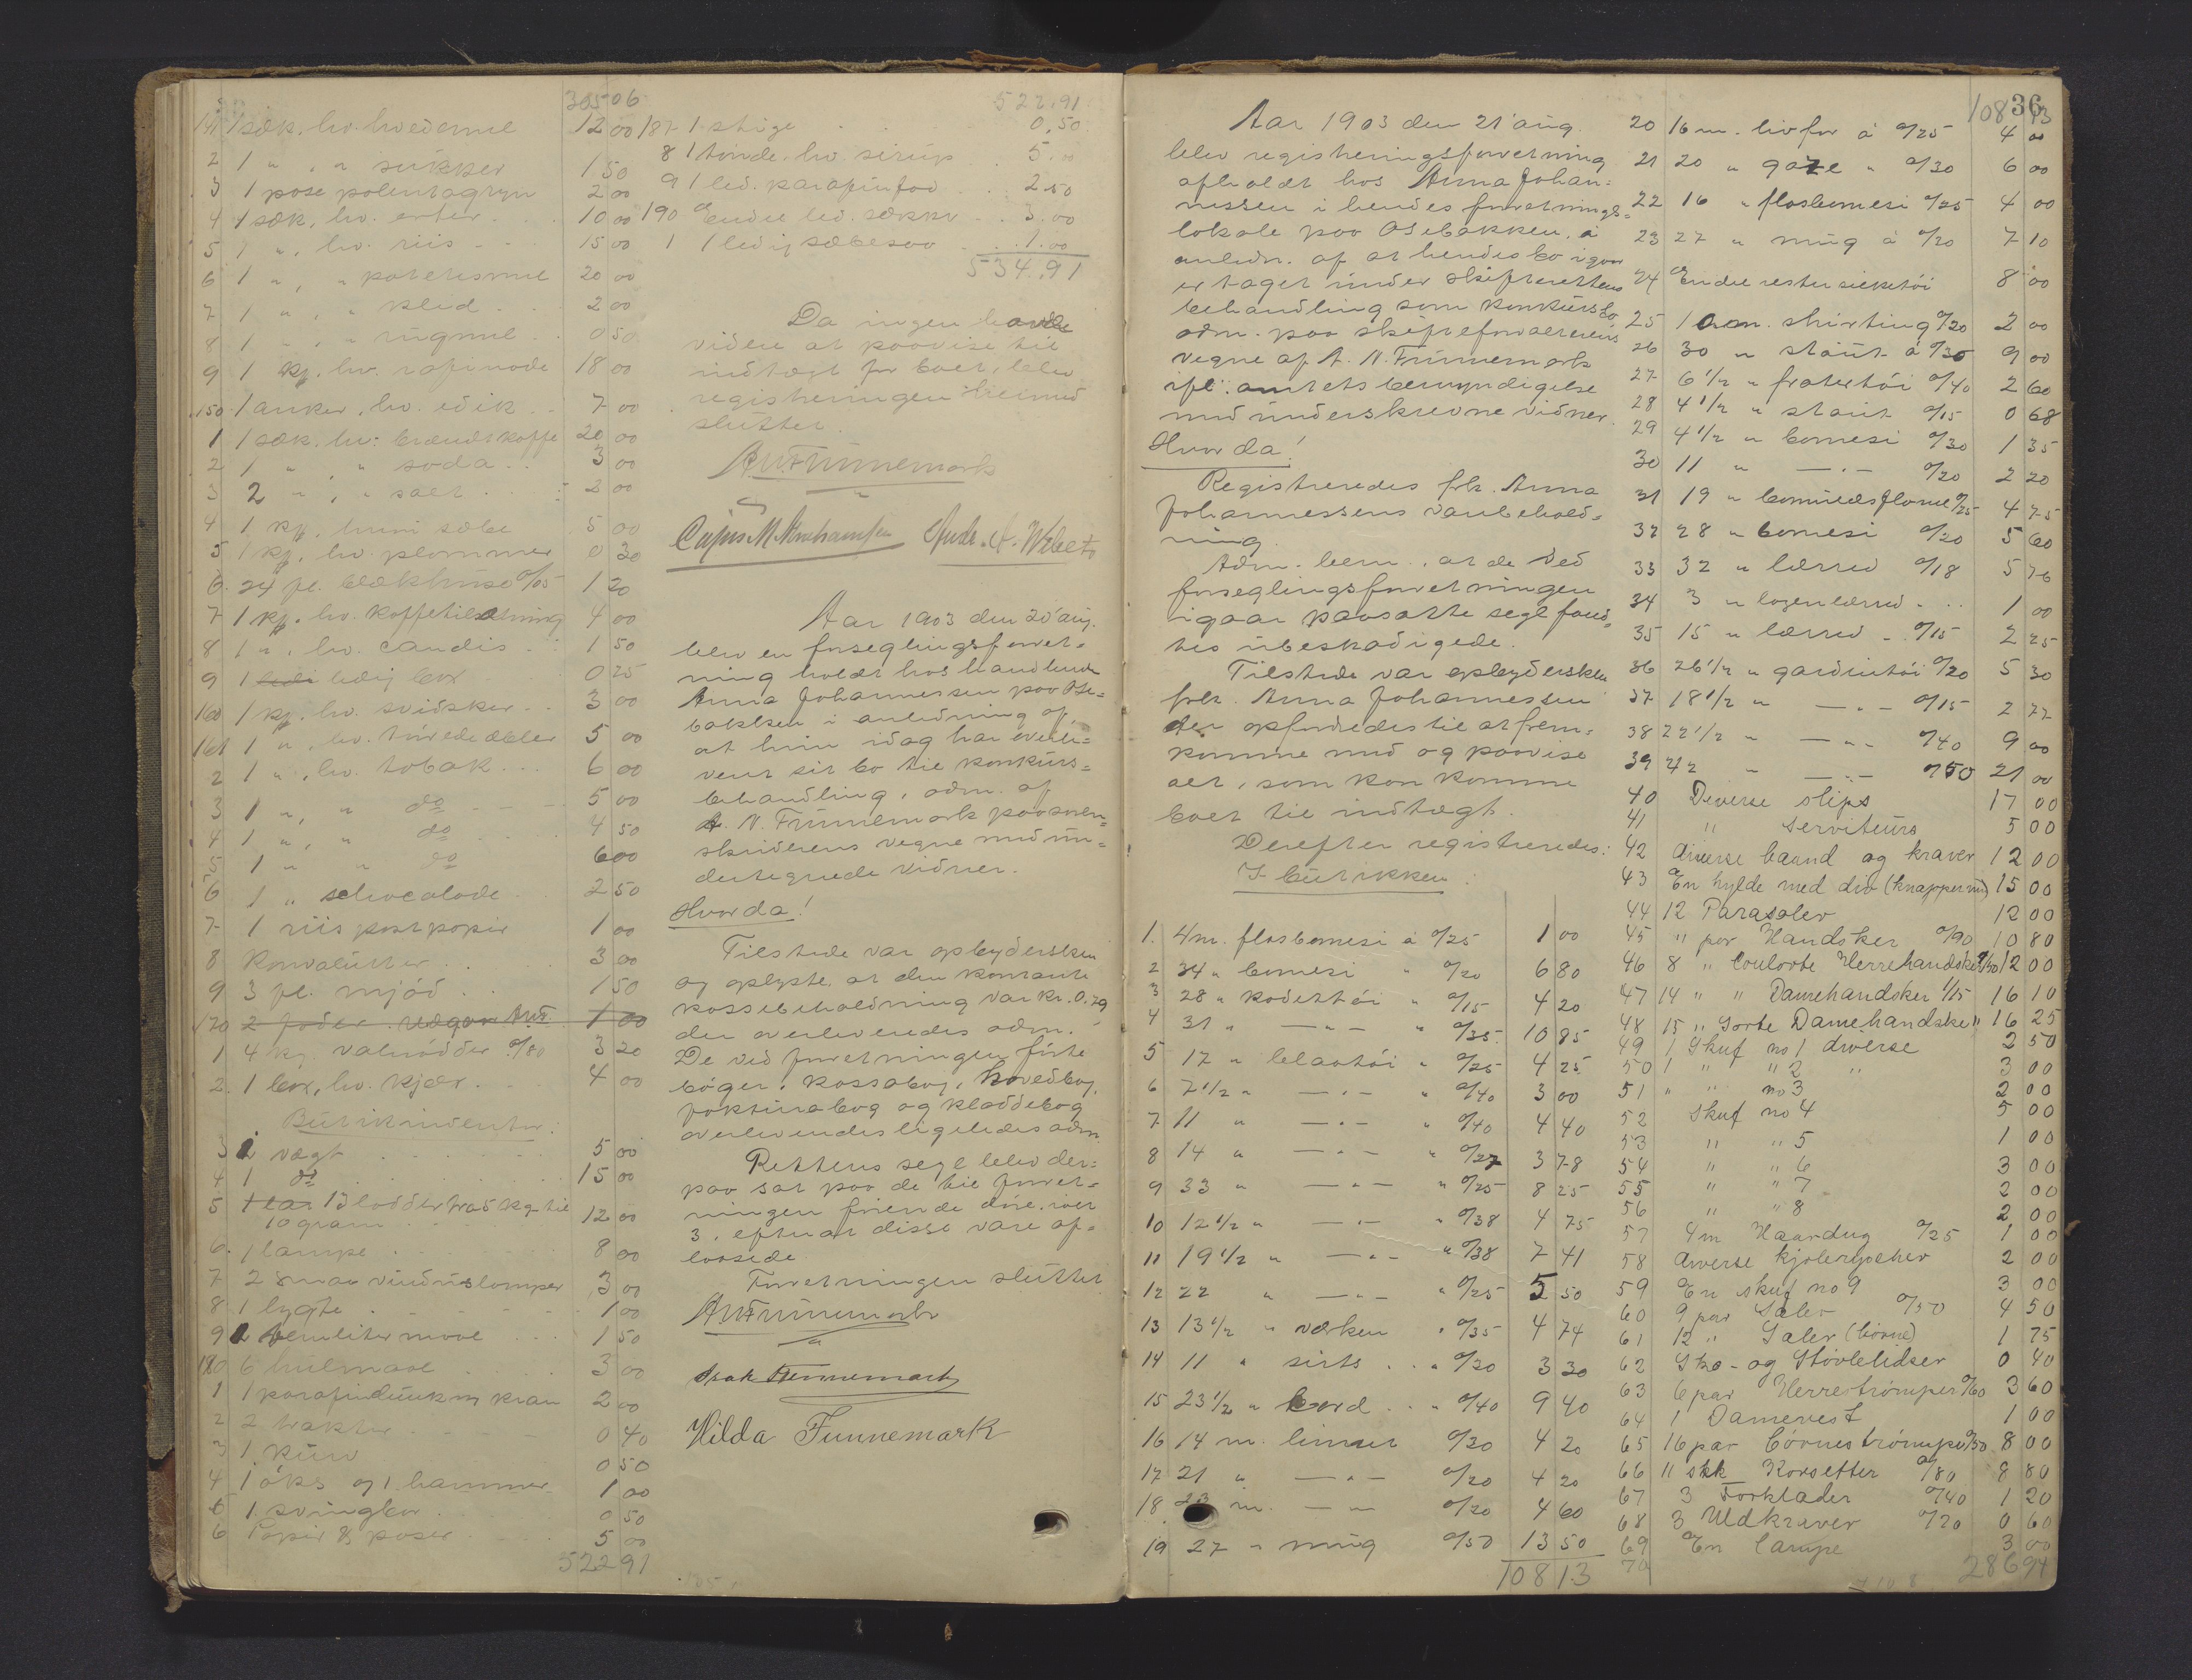 305 06
141 1 sæk, hv. hvedemel 12 00
2 1 " , " sukker 1 50
3 1 pose polentagryn 2 00
4 1 sæk, hv. erter 10 00
5 1 " , hv. riis 15 00
6 1 " , " potetesmel 20 00
7 1 " , " klid 2 00
8 1 " , " rugmel 0 50
9 1 kg. hv. 18 00
150 1 anker, hv. edik 7 00
1 1 sæk. hv: brændt kaffe 20 00
2 1 " " soda 3 00
3 2 " , " salt 2 00
4 1 kg. sæbe 5 00
5 1 kg. hv. plommer 0 30
6 24 fl. blækhuse 0/05 1 20
7 1 kg. hv. kaffetilsætning 4 00
8 1 " . hv. candis 1 50
9 1 ledig box 0 25
160 1 kg. hv. svidsker 3 00
161 1 " . hv. türede æbler 5 00
2 1 " . hv. tobak 6 00
3 1 " , " do 5 00
4 1 " , " do 4 50
5 1 " " do 6 00
6 1 " schocolade 2 50
7 1 riis postpapir 1 00
8 Konvalutter 3 00
9 3 fl. mjød 1 50
170 2 foder 1 00
1 4 kg. valnødder 0/80 3 20
2 1 box, hv. kjæx 4 00
Butikinventar:
3 1 vægt 5 00
4 1 do 15 00
5 13 lodder fra 5 kg til
10 gram 12 00
6 1 lampe 8 00
7 2 smaa vinduslamper 3 00
8 1 lygte 1 00
9 1 demilitermaal 1 50
180 6 hulmaal 3 00
1 1 parafindunk m kran 2 00
2 2 trakter 0 40
3 1 kurv 0 50
4 1 øks og 1 hammer 1 00
5 1 svingbor 0 50
6 Papir & poser 5 00
522 91
522.91
187 1 stige 0.50
8 1 tønde. hv. sirup 5.00
9 1 led. parafinfad 2.50
190 Endel led. sække 3.00
1 1 ledig sæbesaa 1.00
534.91
Da ingen havde
videre at paavise til
indtægt for boet, blev
registreringen hermed
sluttet.
A.N. Funnemark
Aar 1903 den 20' aug.
blev en forseglingsforret-
ning holdt hos handlende
Anna Johannessen paa Ose-
bakken i anledning af
at hun idag har overle-
vert sit bo til konkurs-
behandling, adm. af
A. N. Funnemark paa
vegne med un-
dertegnede vidner.
Hvorda!
Tilstede var opbydersken
og oplyste at den kontante
kassebeholdning var kr. 0.29
der overleveredes adm.
De ved forretningen førte
bøger, kassabog, hovedbog,
fakturabog og kladdebog
overleveredes ligeledes adm.
Rettens segl blev der-
paa sat paa de til forret-
ningen førende døre, ialt
3, efterat disse vare af-
laasede
Forretningen sluttet
A.N. Funnemark
Isak Funnemark
Hilda Funnemark
36
Aar 1903 den 21' aug.
blev registreringsforretning
afholdt hos Anna Johan-
nessen i hendes forretnings-
lokale paa Osebakken, i
anledn. af at hendes bo igaar
er taget under skifterettens
behandling som konkursbo,
adm. paa skifteforvalterens
vegne af A. N. Funnemark
ifl. amtets bemyndigelse
med underskrevne vidner.
Hvorda!
Registreredes frk. Anna
Johannessens varebehold-
ning.
Adm. bem., at de ved
forseglingsforretningen
igaar paasatte segl fand-
tes ubeskadigede.
Tilstede var opbydersken
frk. Anna Johannessen
der opfordredes til at frem-
komme med og paavise
alt, som kan komme
boet til indtægt.
Derefter registreredes:
I butikken:
1. 4 m. flosbomesi á 0/25 1 00
2 34 " bomesi " 0/20 6 80
3 28 " kodettøi " 0/15 4 20
4 31 " —"— " 0/35 10 85
5 17 " blaatøi " 0/25 4 25
6 7 1/2 " —"— " 0/40 3 00
7 11 " —"— " 0/40 4 40
8 14 " —"— " 0/27 3 78
9 33 " —"— " 0/25 8 25
10 12 1/2 " —"— " 0/38 4 75
11 19 1/2 " —"— " 0/38 7 41
12 22 " —"— " 0/25 5 50
13 13 1/2 " værken " 0/35 4 74
14 11 " sirts " 0/30 3 30
15 23 1/2 " " 0/40 9 40
16 14 m. 0/30 4 20
17 21 " —"— 0/20 4 20
18 23 m. —"— 0/20 4 60
19 27 " 0/50 13 50
108 13
108 13
20 16 m. livfor á 0/25 4 00
21 20 " gaze " 0/30 6 00
22 16 " flosbomesi 0/25 4 00
23 27 " á 0/20 7 10
24 Endel rester silketøi 8 00
25 10 m. shirting 0/20 2 00
26 30 " stout á 0/30 9 00
27 6 1/2 " frotertøi 0/40 2 60
28 4 1/2 " stout 0/15 0 68
29 4 1/2 " bomesi 0/30 1 35
30 11 " —"— 0/20 2 20
31 19 " bomuldsflonel 0/25 4 75
32 28 " bomesi 0/20 5 60
33 32 " lærred 0/18 5 76
34 3 " lagenlærred 1 00
35 15 " lærred 0/15 2 25
36 26 1/2 " gardintøi 0/20 5 30
37 18 1/2 " —"— 0/15 2 77
38 22 1/2 " —"— 0/40 9 00
39 42 " —"— 0/50 21 00
40 Diverse slips 17 00
41 " Serviteurs 5 00
42 diverse baand og kraver 12 00
43 En hylde med div (knapper m) 15 00
44 12 Parasoler 12 00
45 " par Handsker 0/90 10 80
46 8 " Coulørte Herrehandsker 1/50 12 00
47 14 " " Damehandsker 1/15 16 10
48 15 " Sorte Damehandske " 16 25
49 1 Skuf no 1 diverse 2 50
50 1 " " 2 " 3 00
51 " " no 3 2 00
52 Skuf no 4 5 00
53 " " 5 1 00
54 " " 6 3 00
55 " " 7 2 00
56 " " 8 2 00
57 4 m Haardug 0/25 1 00
58 diverse kjoleryscher 2 00
59 En skuf no 9 3 00
60 9 par Saler 0/50 4 50
61 12 " Saler (børne) 1 75
62 Sko- og Støvlelidser 0 40
63 6 par Herrestrømper 0/60 3 60
64 1 Damevest 1 00
65 16 par børnestrømper 0/50 8 00
66 11 stk Korsetter 0/80 8 80
67 3 Forklader 0/40 1 20
68 3 Uldkraver 0/20 0 60
69 En Lampe 3 00
70 286 94